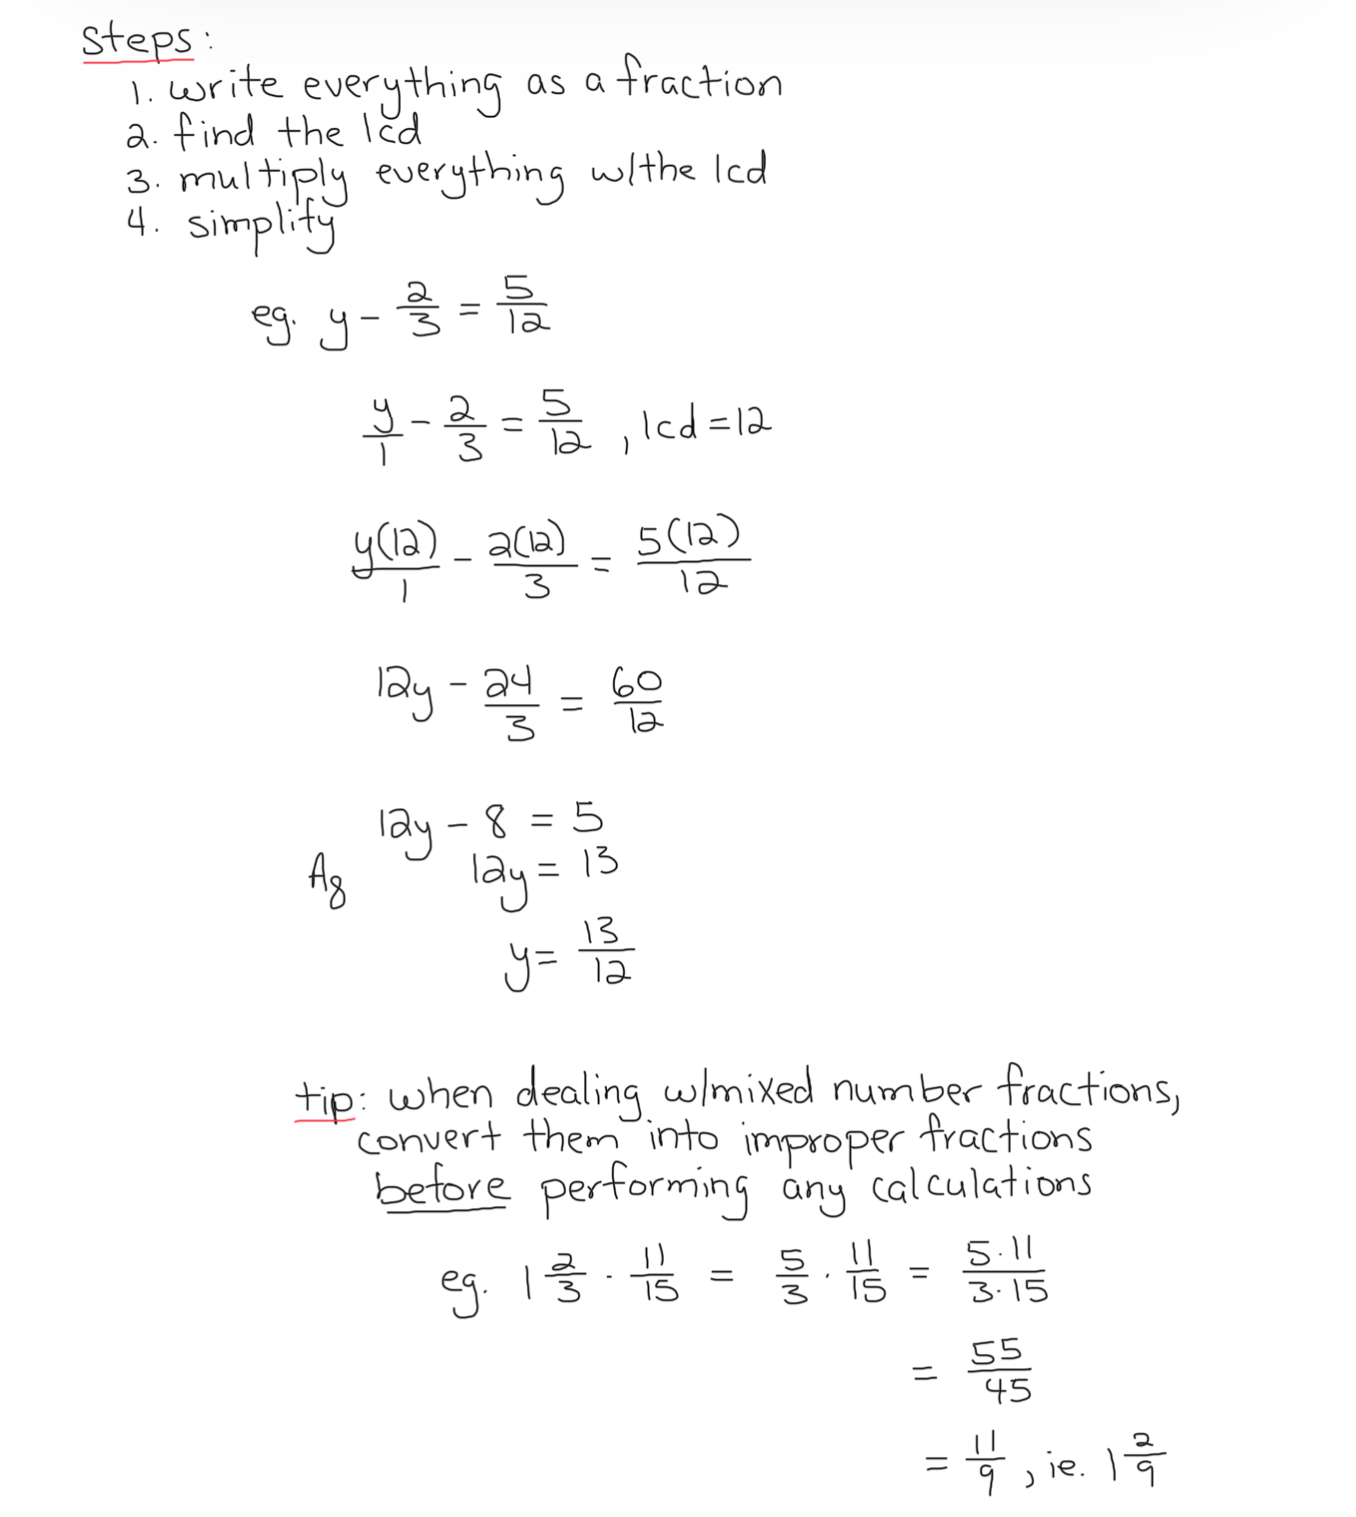 steps:
1. write everything as a fraction
2. find the lcd
3. multiply everything w/the lcd
4. simplify
eg. y - 2/3 = 5/12
y/1 - 2/3 = 5/12 , lcd = 12
y(12)/1 - 2(12)/3 = 5(12)/12
12y - 24/3 = 60/12
12y - 8 = 5
A8 12y = 13
y = 13/12
tip: when dealing w/mixed number fractions,
convert them into improper fractions
before performing any calculations
eg. 1 2/3 · 11/15 = 5/3 · 11/15 = 5·11/3·15
= 55/45
= 11/9 , ie. 1 2/9